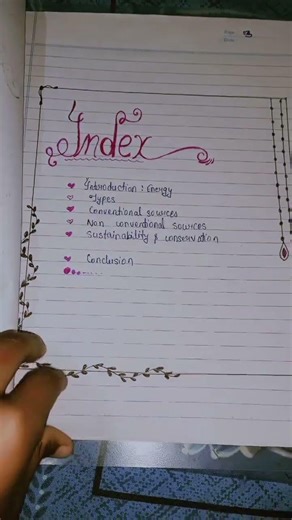 Index
Introduction : Energy
Types
Conventional sources
Non conventional sources
Sustainability & conservation
Conclusion